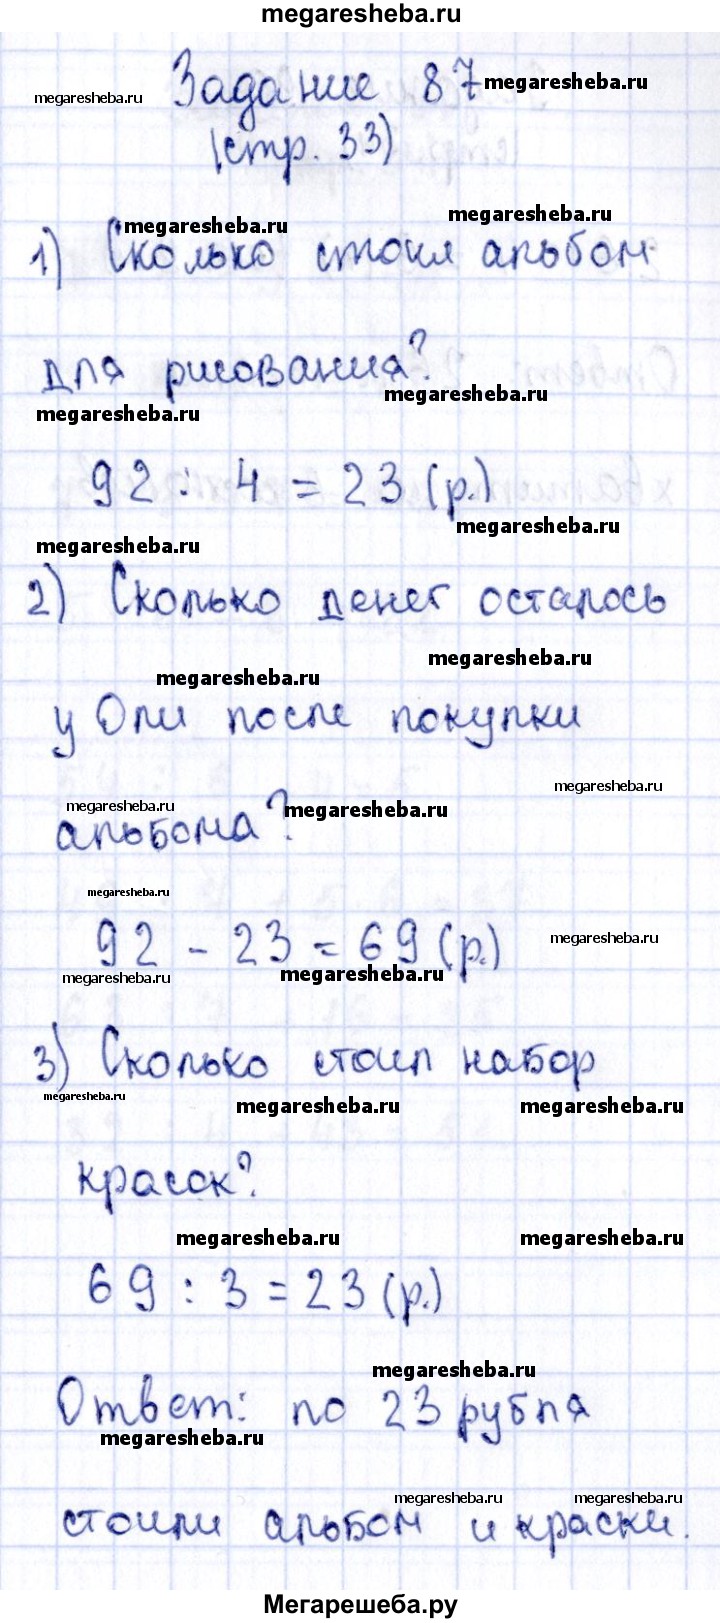 megaresheba.ru
Задание 87 megaresheba.ru
megaresheba.ru
(стр. 33)
megaresheba.ru megaresheba.ru
1) Сколько стоил альбом
для рисования?
megaresheba.ru
megaresheba.ru
92 : 4 = 23 (р.)
megaresheba.ru
megaresheba.ru
2) Сколько денег осталось
megaresheba.ru
megaresheba.ru
у Оли после покупки
megaresheba.ru
megaresheba.ru megaresheba.ru
альбома?
megaresheba.ru
92 - 23 = 69 (р.) megaresheba.ru
megaresheba.ru megaresheba.ru
3) Сколько стоил набор
megaresheba.ru megaresheba.ru megaresheba.ru
красок?
megaresheba.ru megaresheba.ru
69 : 3 = 23 (р.)
megaresheba.ru
Ответ: по 23 рубля
megaresheba.ru
megaresheba.ru megaresheba.ru
стоили альбом и краски.
Мегарешеба.ру